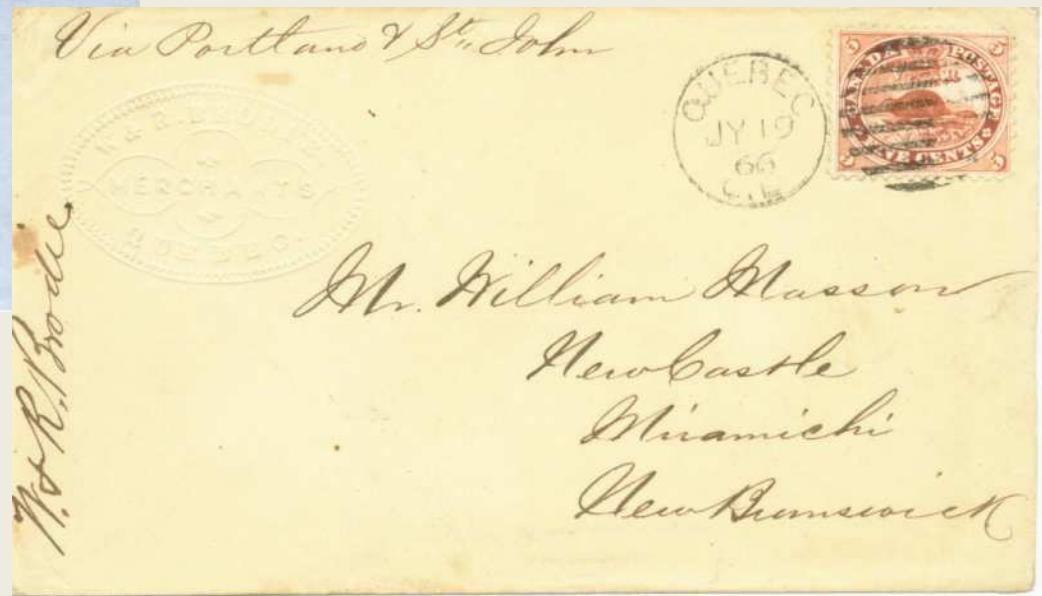 Via Portland & St. John
W & R. BRODIE
MERCHANTS
QUEBEC.
QUEBEC
JY 19
66
C.E.
5 5
CANADA POSTAGE
FIVE CENTS
5 5
Mr. William Masson
NewCastle
Miramichi
New Brunswick
W. & R. Brodie